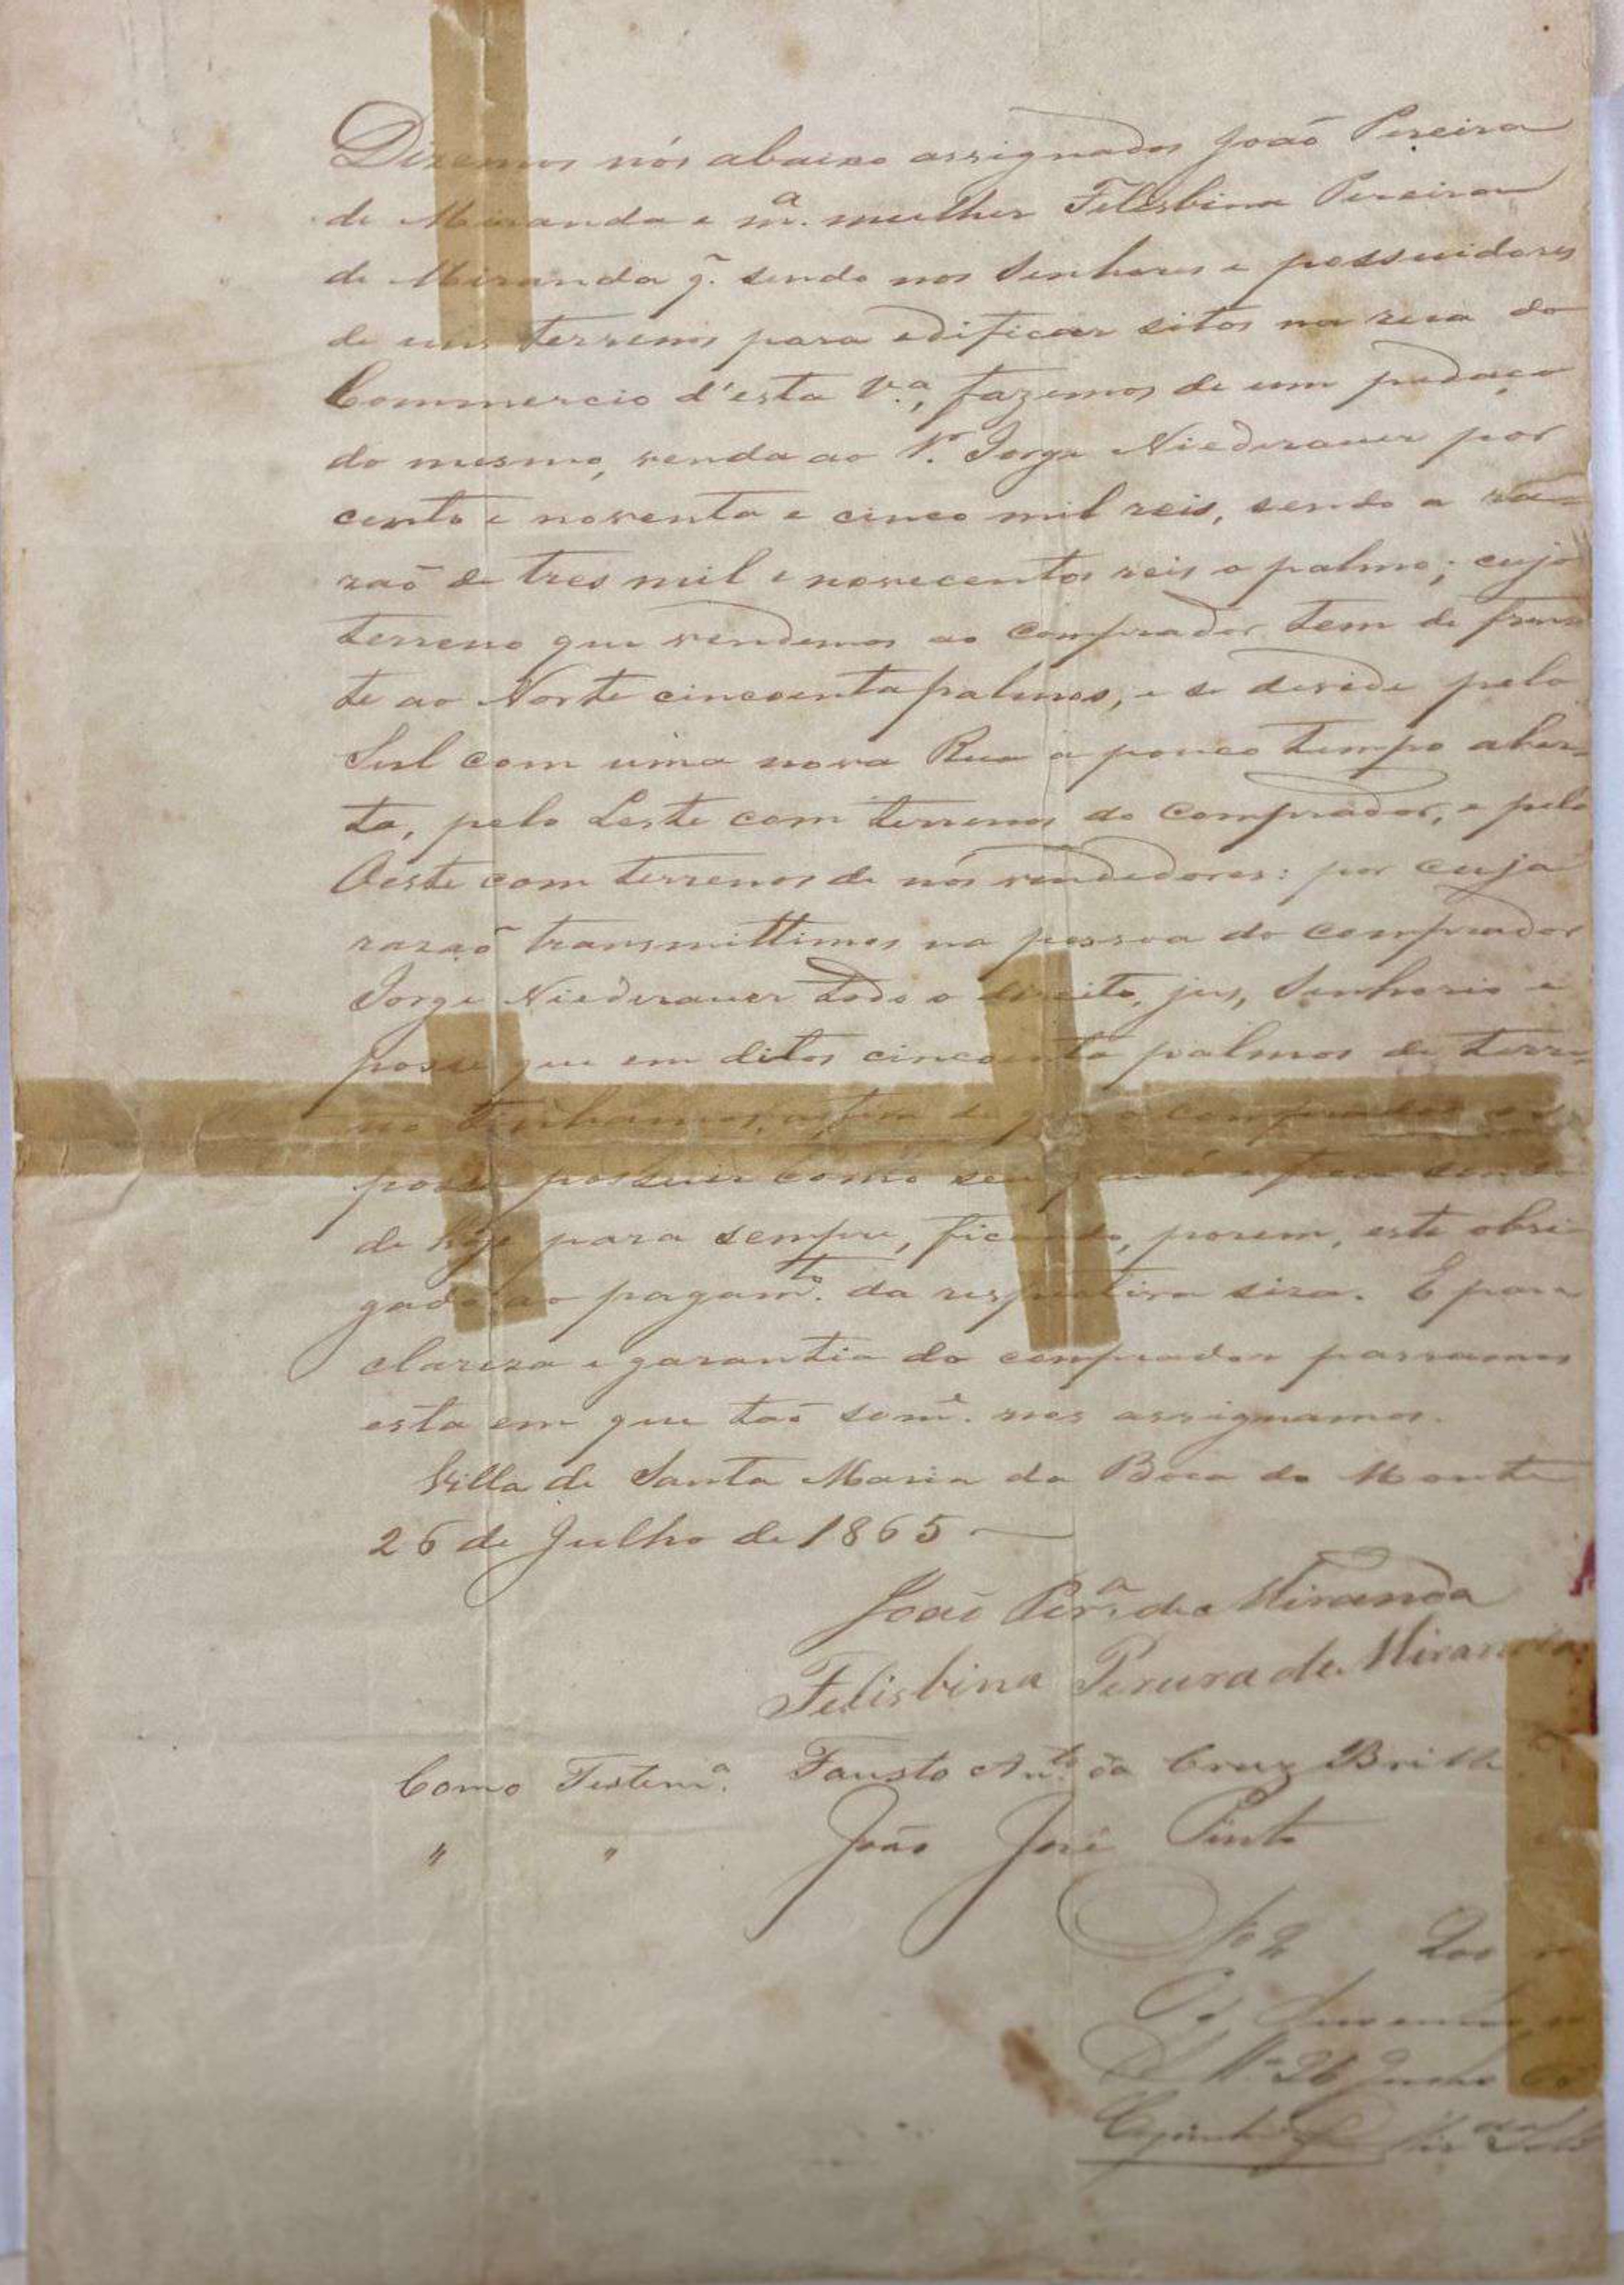 Dizemos nós abaixo assignados João Pereira
de Miranda e m.ª mulher Felisbina Pereira
de Miranda q̃. sendo nos Senhores e possuidores
de uns terrenos para edificar sitos na rua do
Commercio d'esta V.ª, fazemos de um pedaço
do mesmo, venda ao Sr. Jorge Niederauer por
cento e noventa e cinco mil reis, sendo a ra=
zaõ de tres mil e novecentos reis o palmo; cujo
terreno que vendemos ao comprador tem de fren=
te ao Norte cincoenta palmos, e se devide pelo
Sul com uma nova Rua a pouco tempo aber=
ta, pelo Leste com terrenos do comprador, e pelo
Oeste com terrenos de nós vendedores: por cuja
razaõ transmittimos na pessoa do comprador
Jorge Niederauer todo o direito, jus, Senhorio e
posse que em ditos cincoenta palmos de terre=
no tinhamos, afim de que o comprador os
possa possuir como seu que é e fica sendo
de hoje para sempre, ficando, porem, este obri=
gado ao pagam.to da respectiva siza. E para
clareza e garantia do comprador passamos
esta em que taõ som.e nos assignamos.
Villa de Santa Maria da Boca do Monte
26 de Julho de 1865
João Per.ª de Miranda
Felisbina Pereira de Miranda
Como Testem.ª Fausto Ant.º da Cruz Brilh
" " João José Pinto
Nº 2 200
26